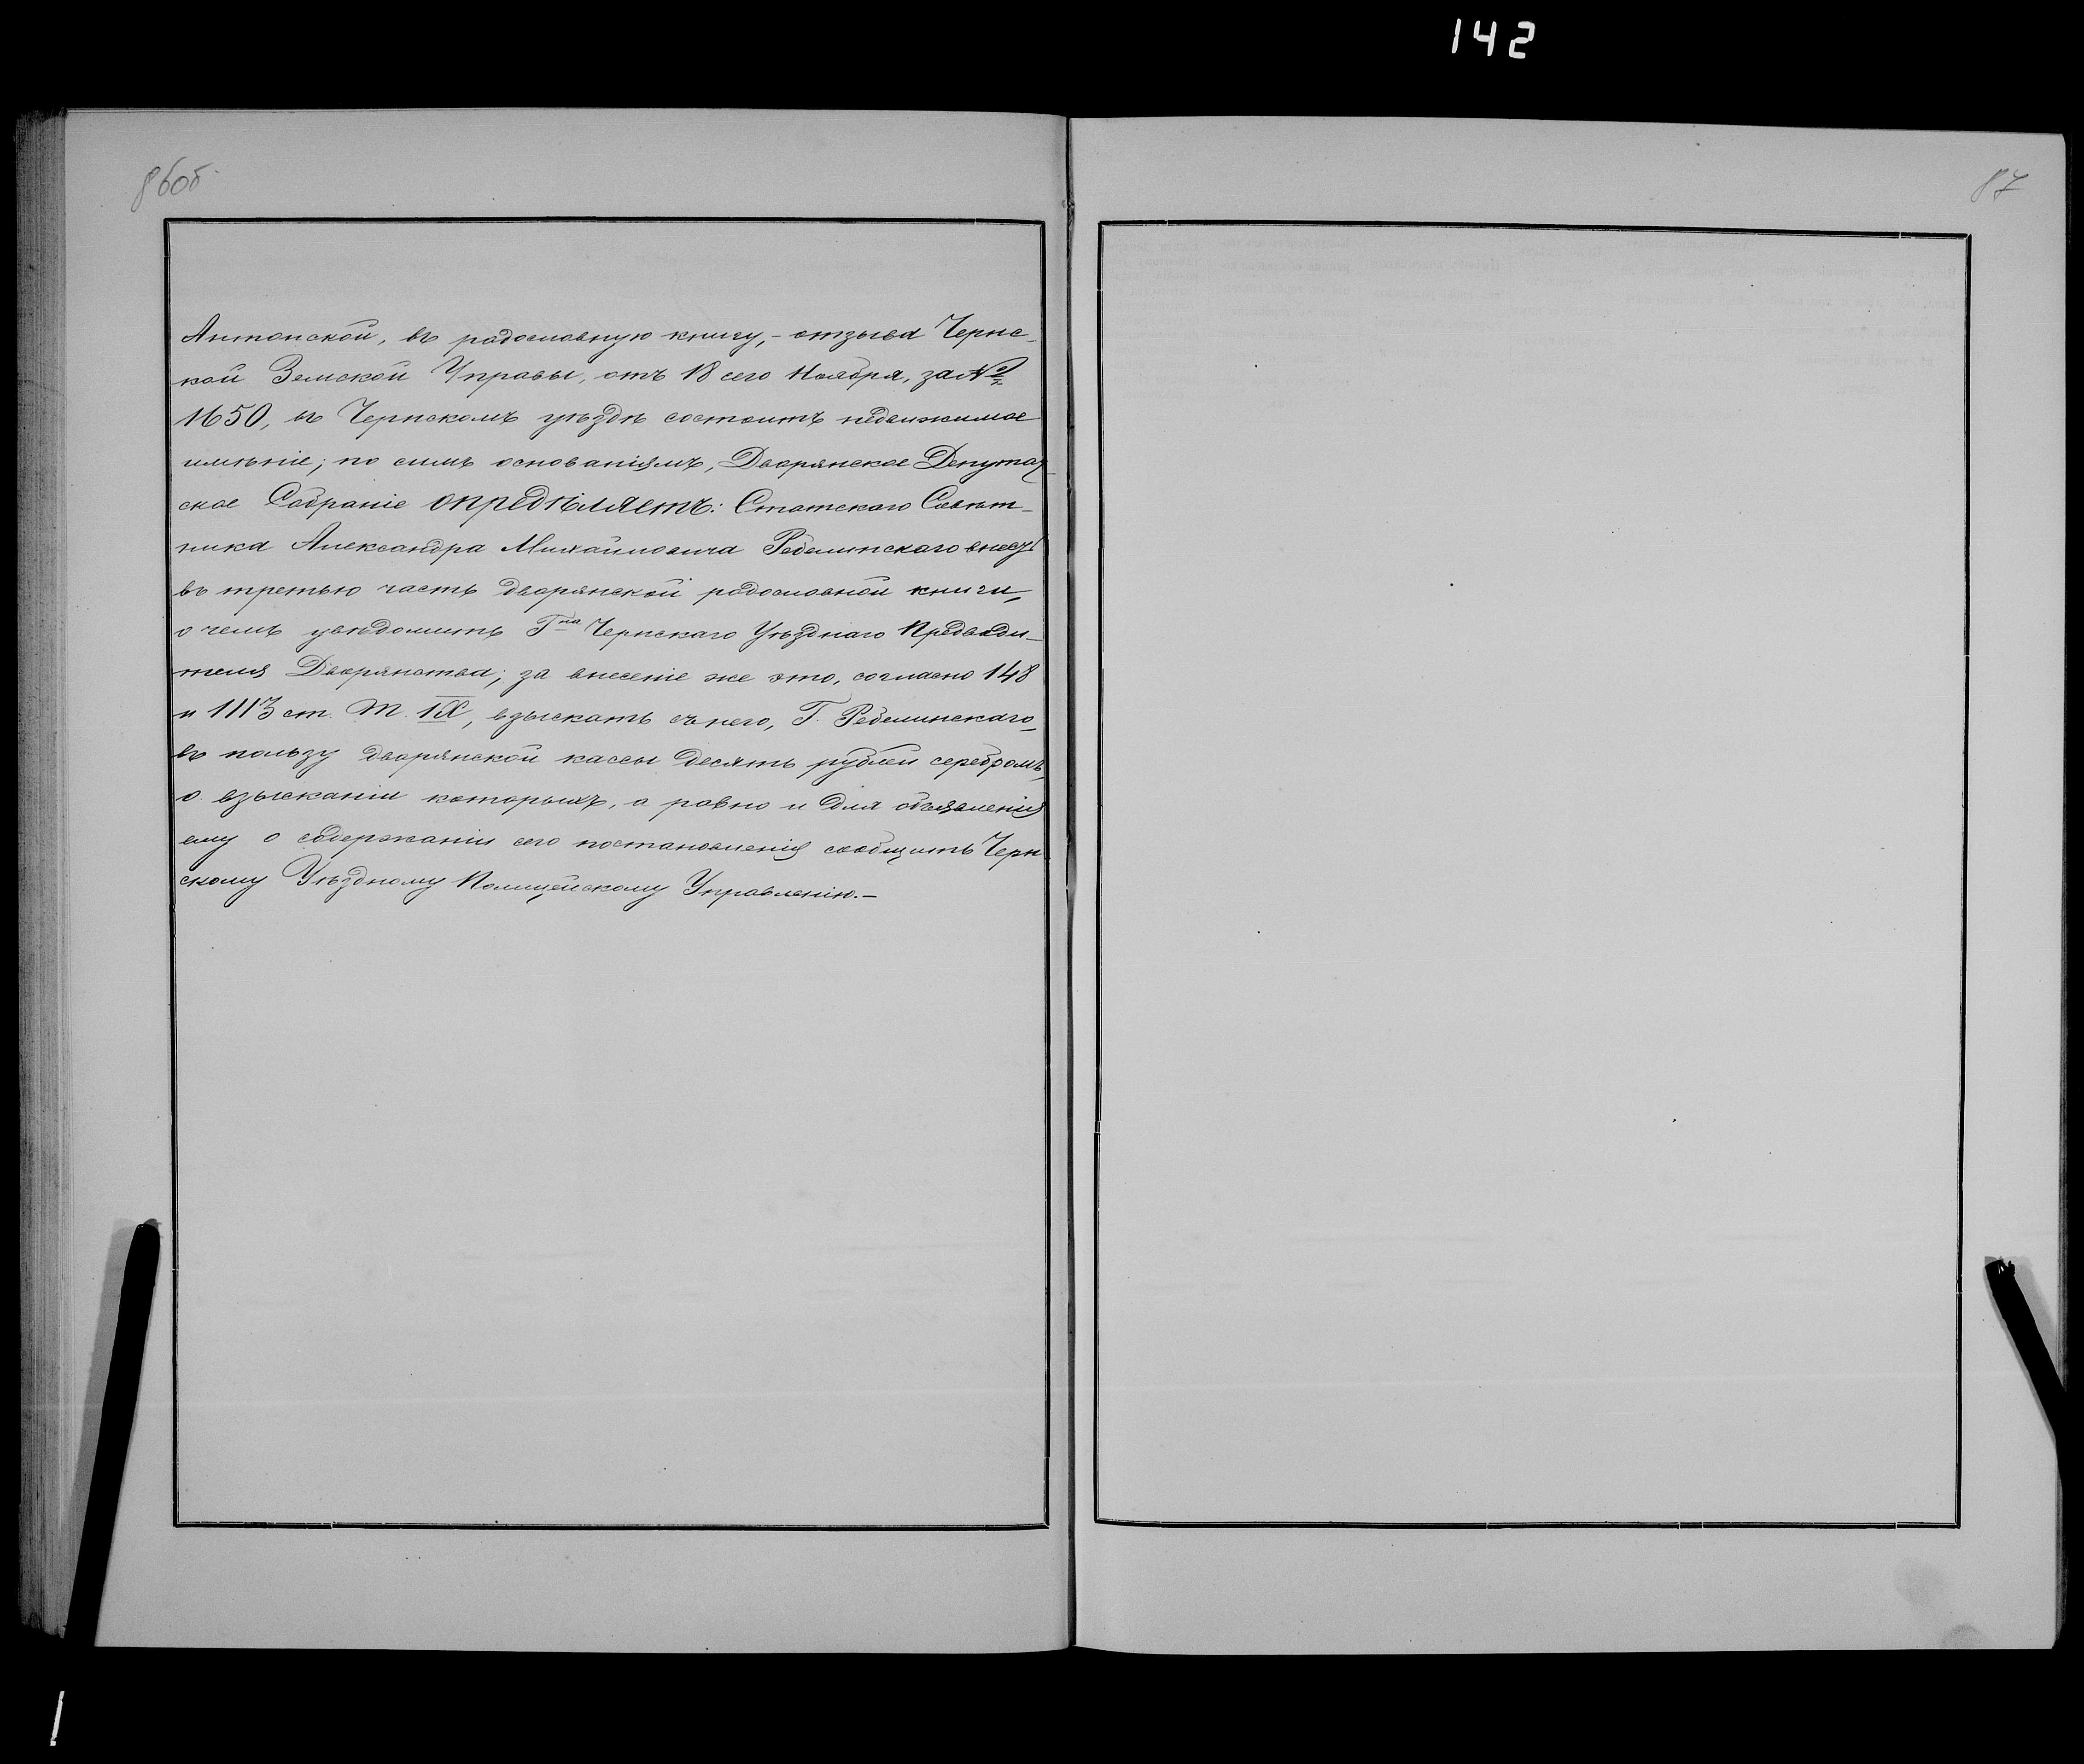 142
86об.
87
Антопской, въ родословную книгу, - отзыва Чернс-
кой Земской Управы, отъ 18 сего Ноября, за №
1650, въ Чернскомъ уѣздѣ состоитъ недвижимое
имѣніе; по симъ основаніямъ, Дворянское Депутат-
ское Собраніе опредѣляетъ: Статскаго Совѣт-
ника Александра Михайловича Ребелинскаго внесть
въ третью часть дворянской родословной книги,
о чемъ увѣдомить Гна Чернскаго Уѣзднаго Предводи-
теля Дворянства; за внесеніе же это, согласно 148
и 1113 ст. Т. IX, взыскать съ него, Г. Ребелинскаго,
въ пользу дворянской кассы десять рублей серебромъ,
о взысканіи которыхъ, а равно и для объявленія
ему о содержаніи сего постановленія сообщить Черн-
скому Уѣздному Полицейскому Управленію.-